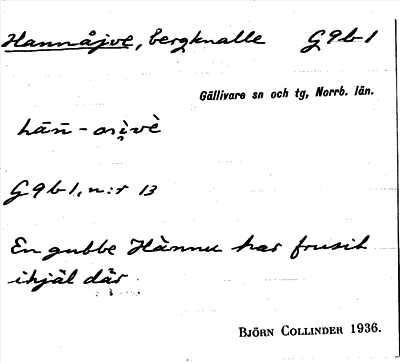 Hannåjve, bergknalle G9b1
Gällivare sn och tg, Norrb. län.
G9b1, n:r 13
En gubbe Hànnu har frusit
ihjäl där.
BJÖRN COLLINDER 1936.